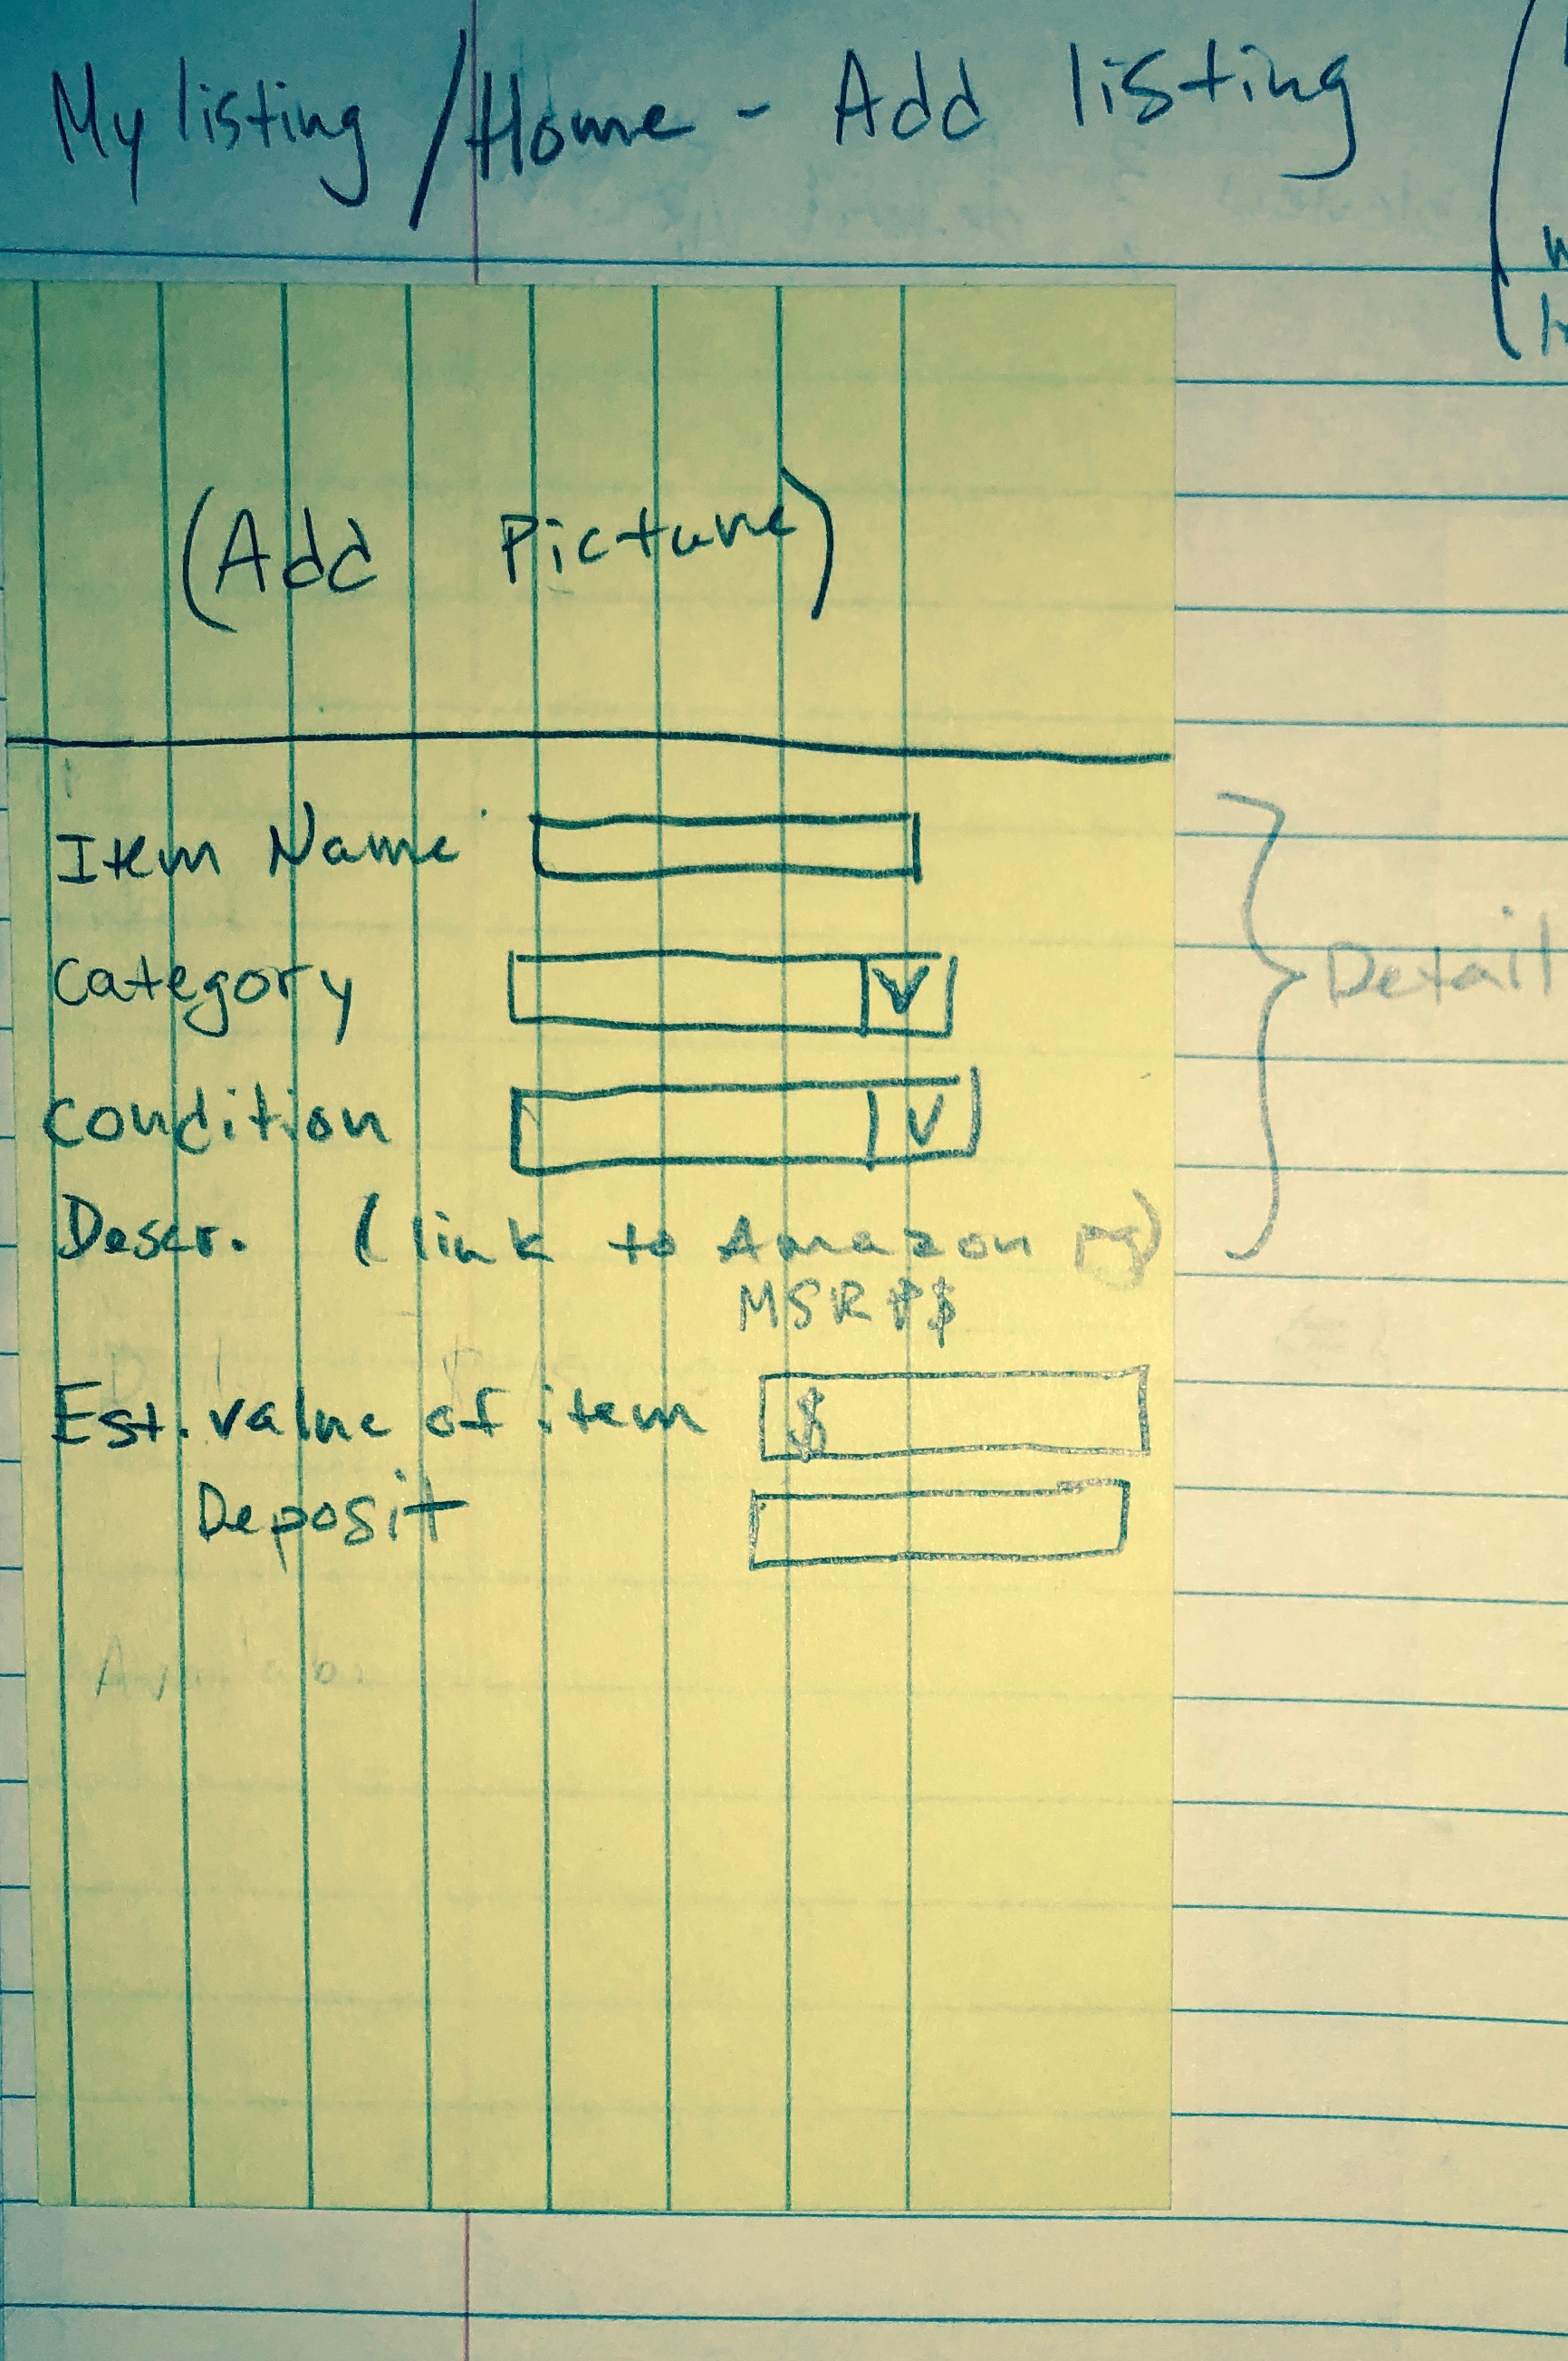 My listing / Home - Add listing
(Add Picture)
Item Name
Category
V
Condition
V
Detail
Descr. (link to Amazon pg)
MSRP $
Est. value of item $
Deposit